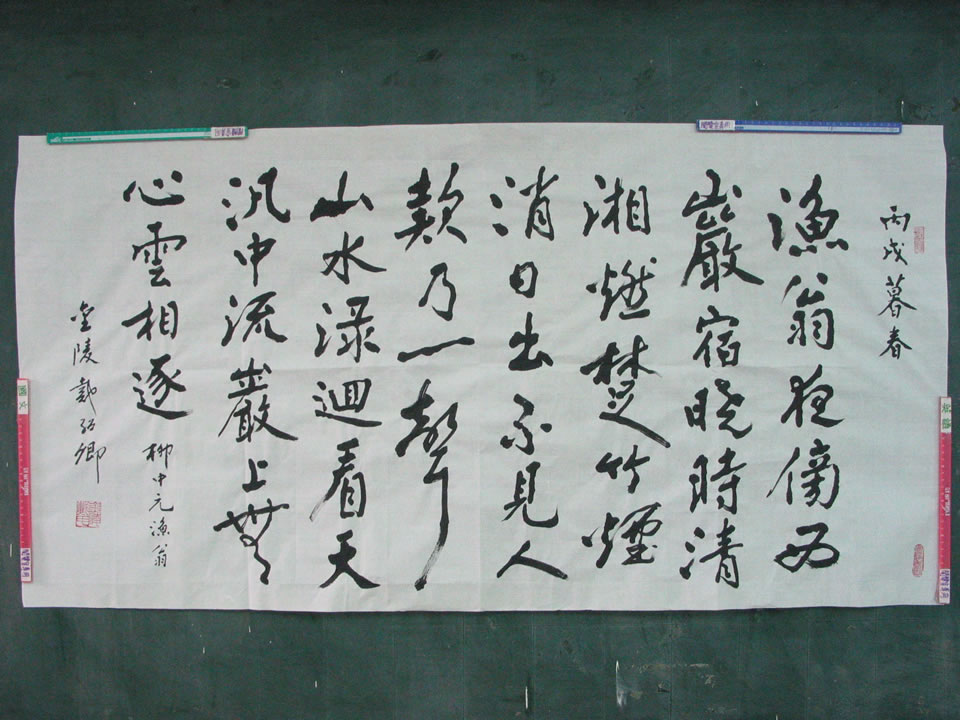 丙戌暮春
漁翁夜傍西
巖宿晓時清
湘燃楚竹煙
消日出不見人
欵乃一聲
山水淥迴看天
汎中流巖上無
心雲相逐
柳中元漁翁
金陵戴卿